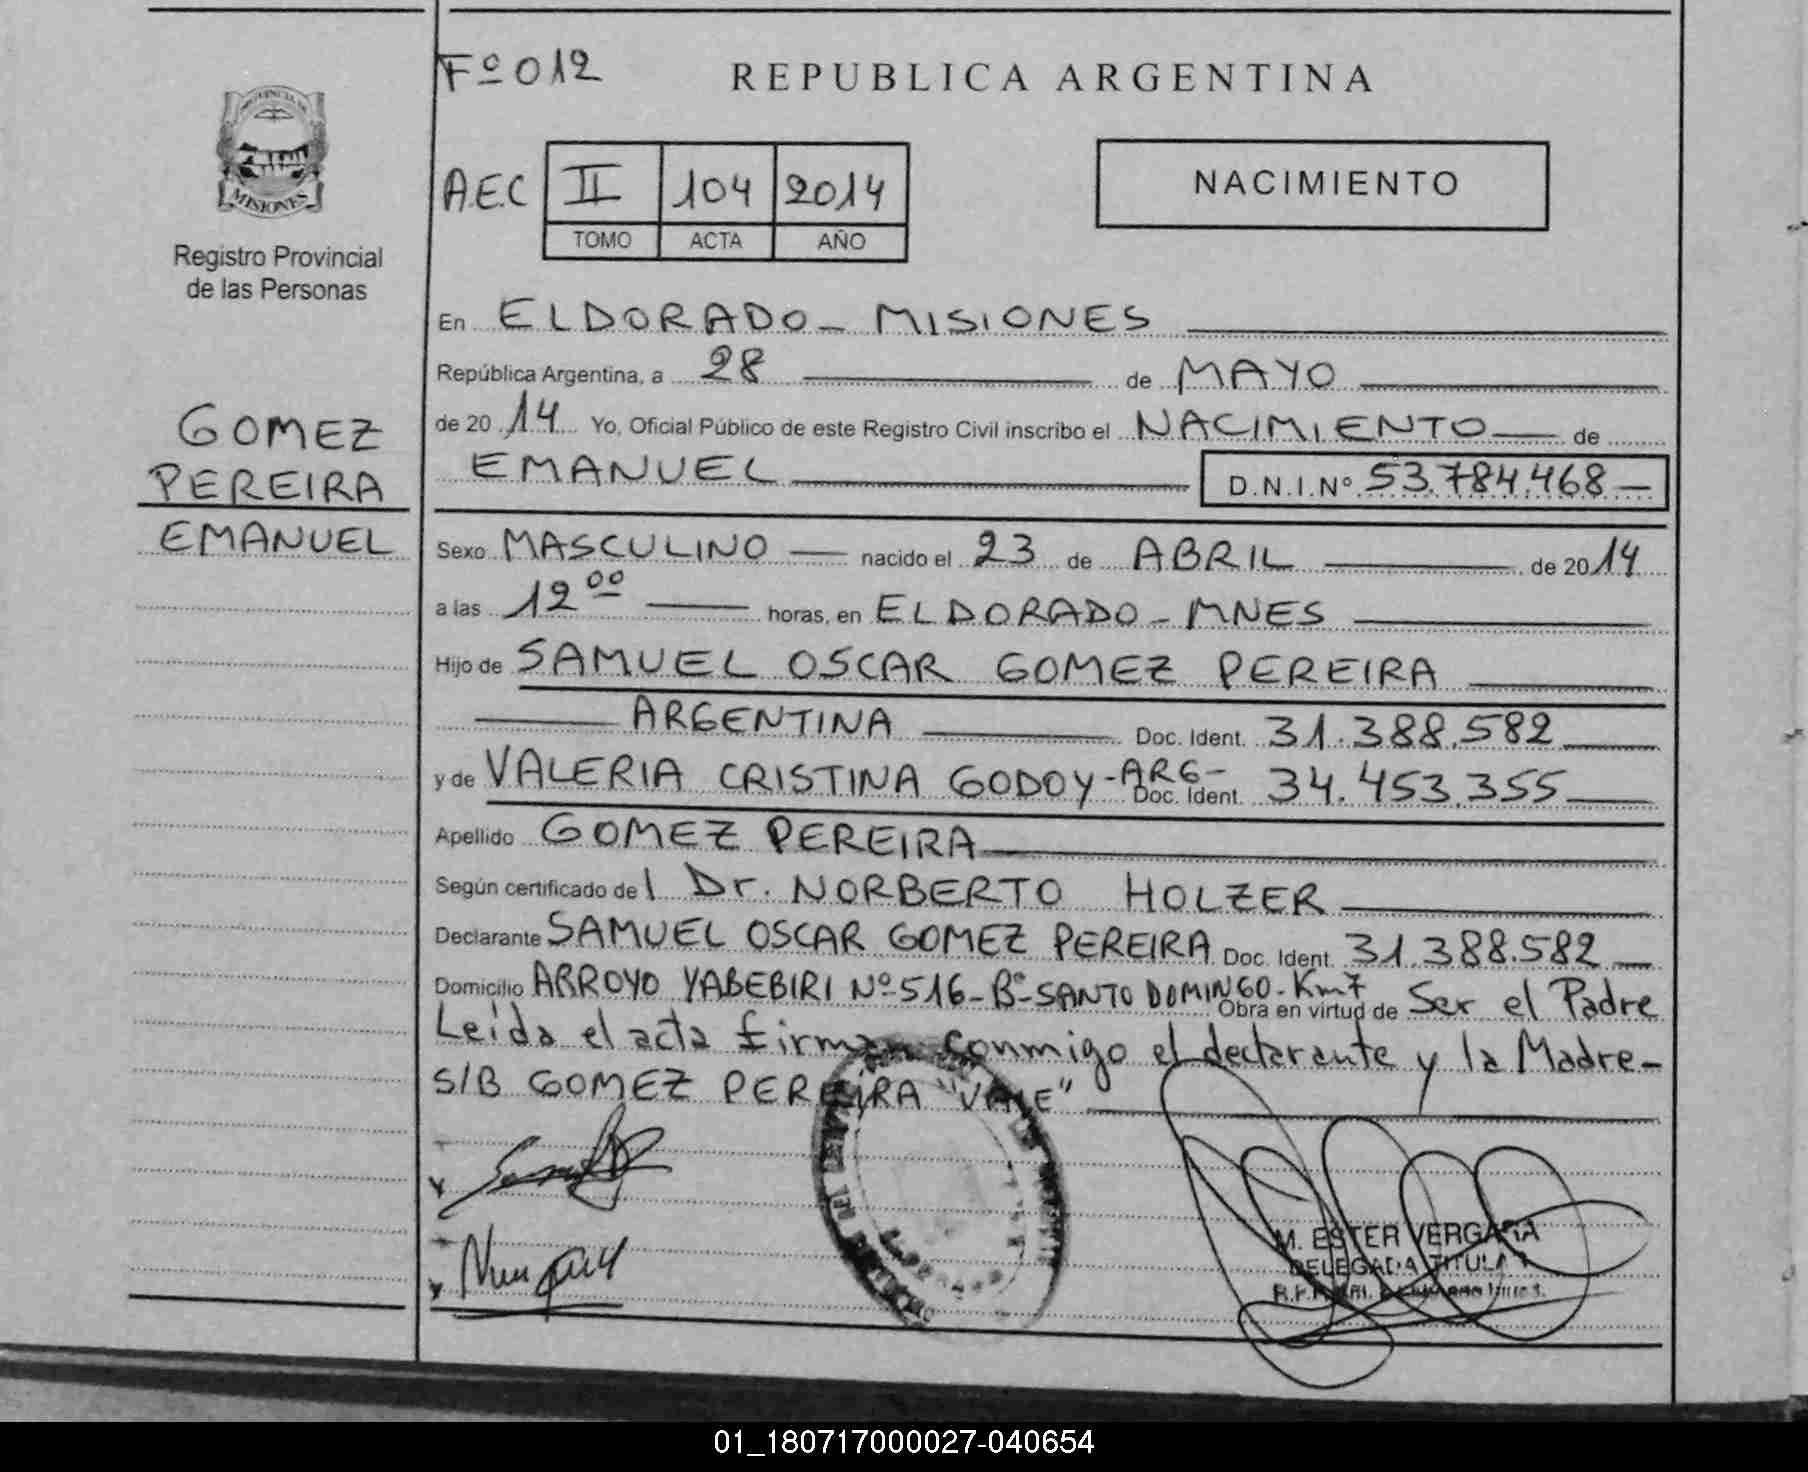 PROVINCIA DE
MISIONES
Registro Provincial
de las Personas
GOMEZ
PEREIRA
EMANUEL
Fº 012
REPUBLICA ARGENTINA
AEC II 104 2014
TOMO ACTA AÑO
NACIMIENTO
En ELDORADO - MISIONES
República Argentina, a 28 de MAYO
de 20 14 Yo, Oficial Público de este Registro Civil inscribo el NACIMIENTO de
EMANUEL D.N.I.Nº 53.784.468 -
Sexo MASCULINO nacido el 23 de ABRIL de 20 14
a las 12 00 horas, en ELDORADO - MNES
Hijo de SAMUEL OSCAR GOMEZ PEREIRA
ARGENTINA Doc. Ident. 31.388.582
y de VALERIA CRISTINA GODOY - ARG - Doc. Ident. 34.453.355
Apellido GOMEZ PEREIRA
Según certificado de l Dr. NORBERTO HOLZER
Declarante SAMUEL OSCAR GOMEZ PEREIRA Doc. Ident. 31.388.582
Domicilio ARROYO YABEBIRI Nº 516 - Bº - SANTO DOMINGO - Km 7 Obra en virtud de Ser el Padre
Leida el acta firman conmigo el declarante y la Madre -
S/B GOMEZ PEREIRA "VALE"
M. ESTER VERGARA
DELEGADA TITULAR
01_180717000027-040654